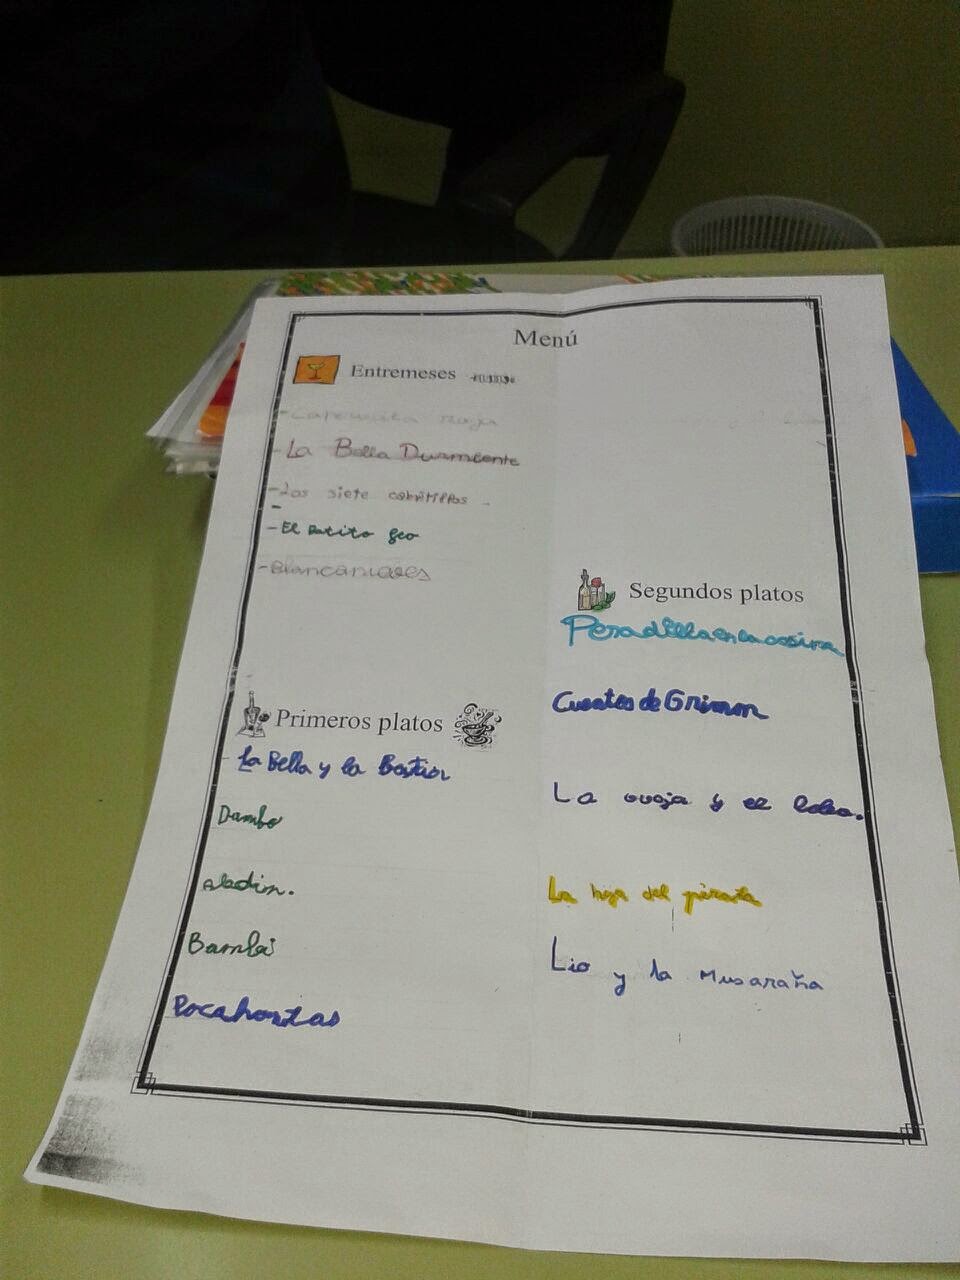 Menú
Entremeses
- Caperucita roja
- La Bella Durmiente
- Los siete cabritillos
- El Patito feo
- Blancanieves
Primeros platos
La Bella y la Bestia
Dumbo
Aladin.
Bambi
Pocahontas
Segundos platos
Pesadilla en la cocina
Cuentos de Grimm
La oveja y el lobo.
La hija del pirata
Lio y la Musaraña